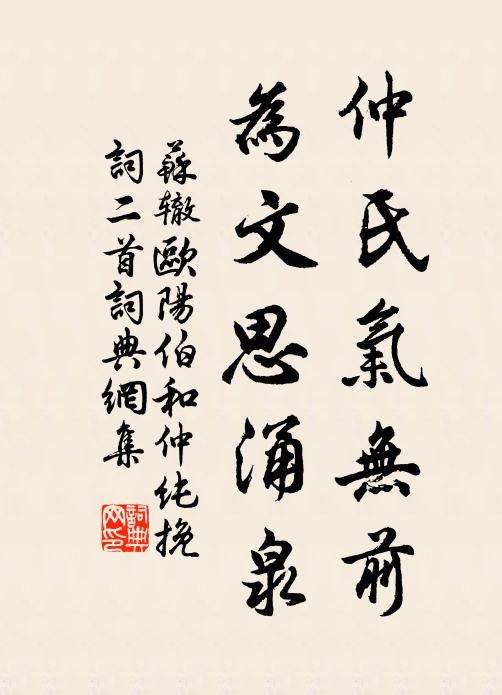 仲氏氣無前
為文思涌泉
蘇辙歐陽伯和仲纯挽
詞二首詞典網集
詞典
网印